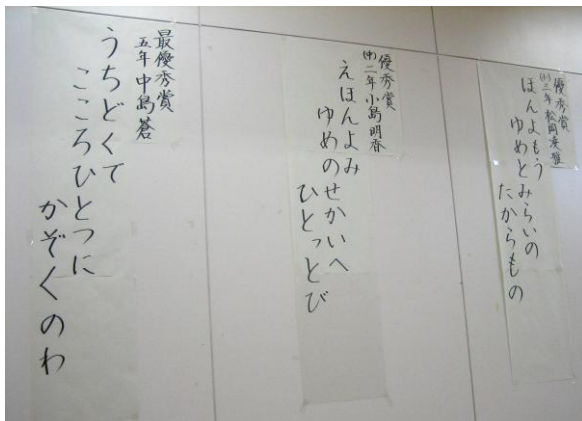 優秀賞
(小)三年 松岡凌雅
ほんよもう
ゆめとみらいの
たからもの
優秀賞
(中)二年 小島明香
えほんよみ
ゆめのせかいへ
ひとっとび
最優秀賞
五年 中島蒼
うちどくで
こころひとつに
かぞくのわ